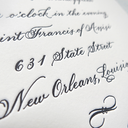 o'clock in the evening
Saint Francis of Assisi
631 State Street
New Orleans, Louisiana